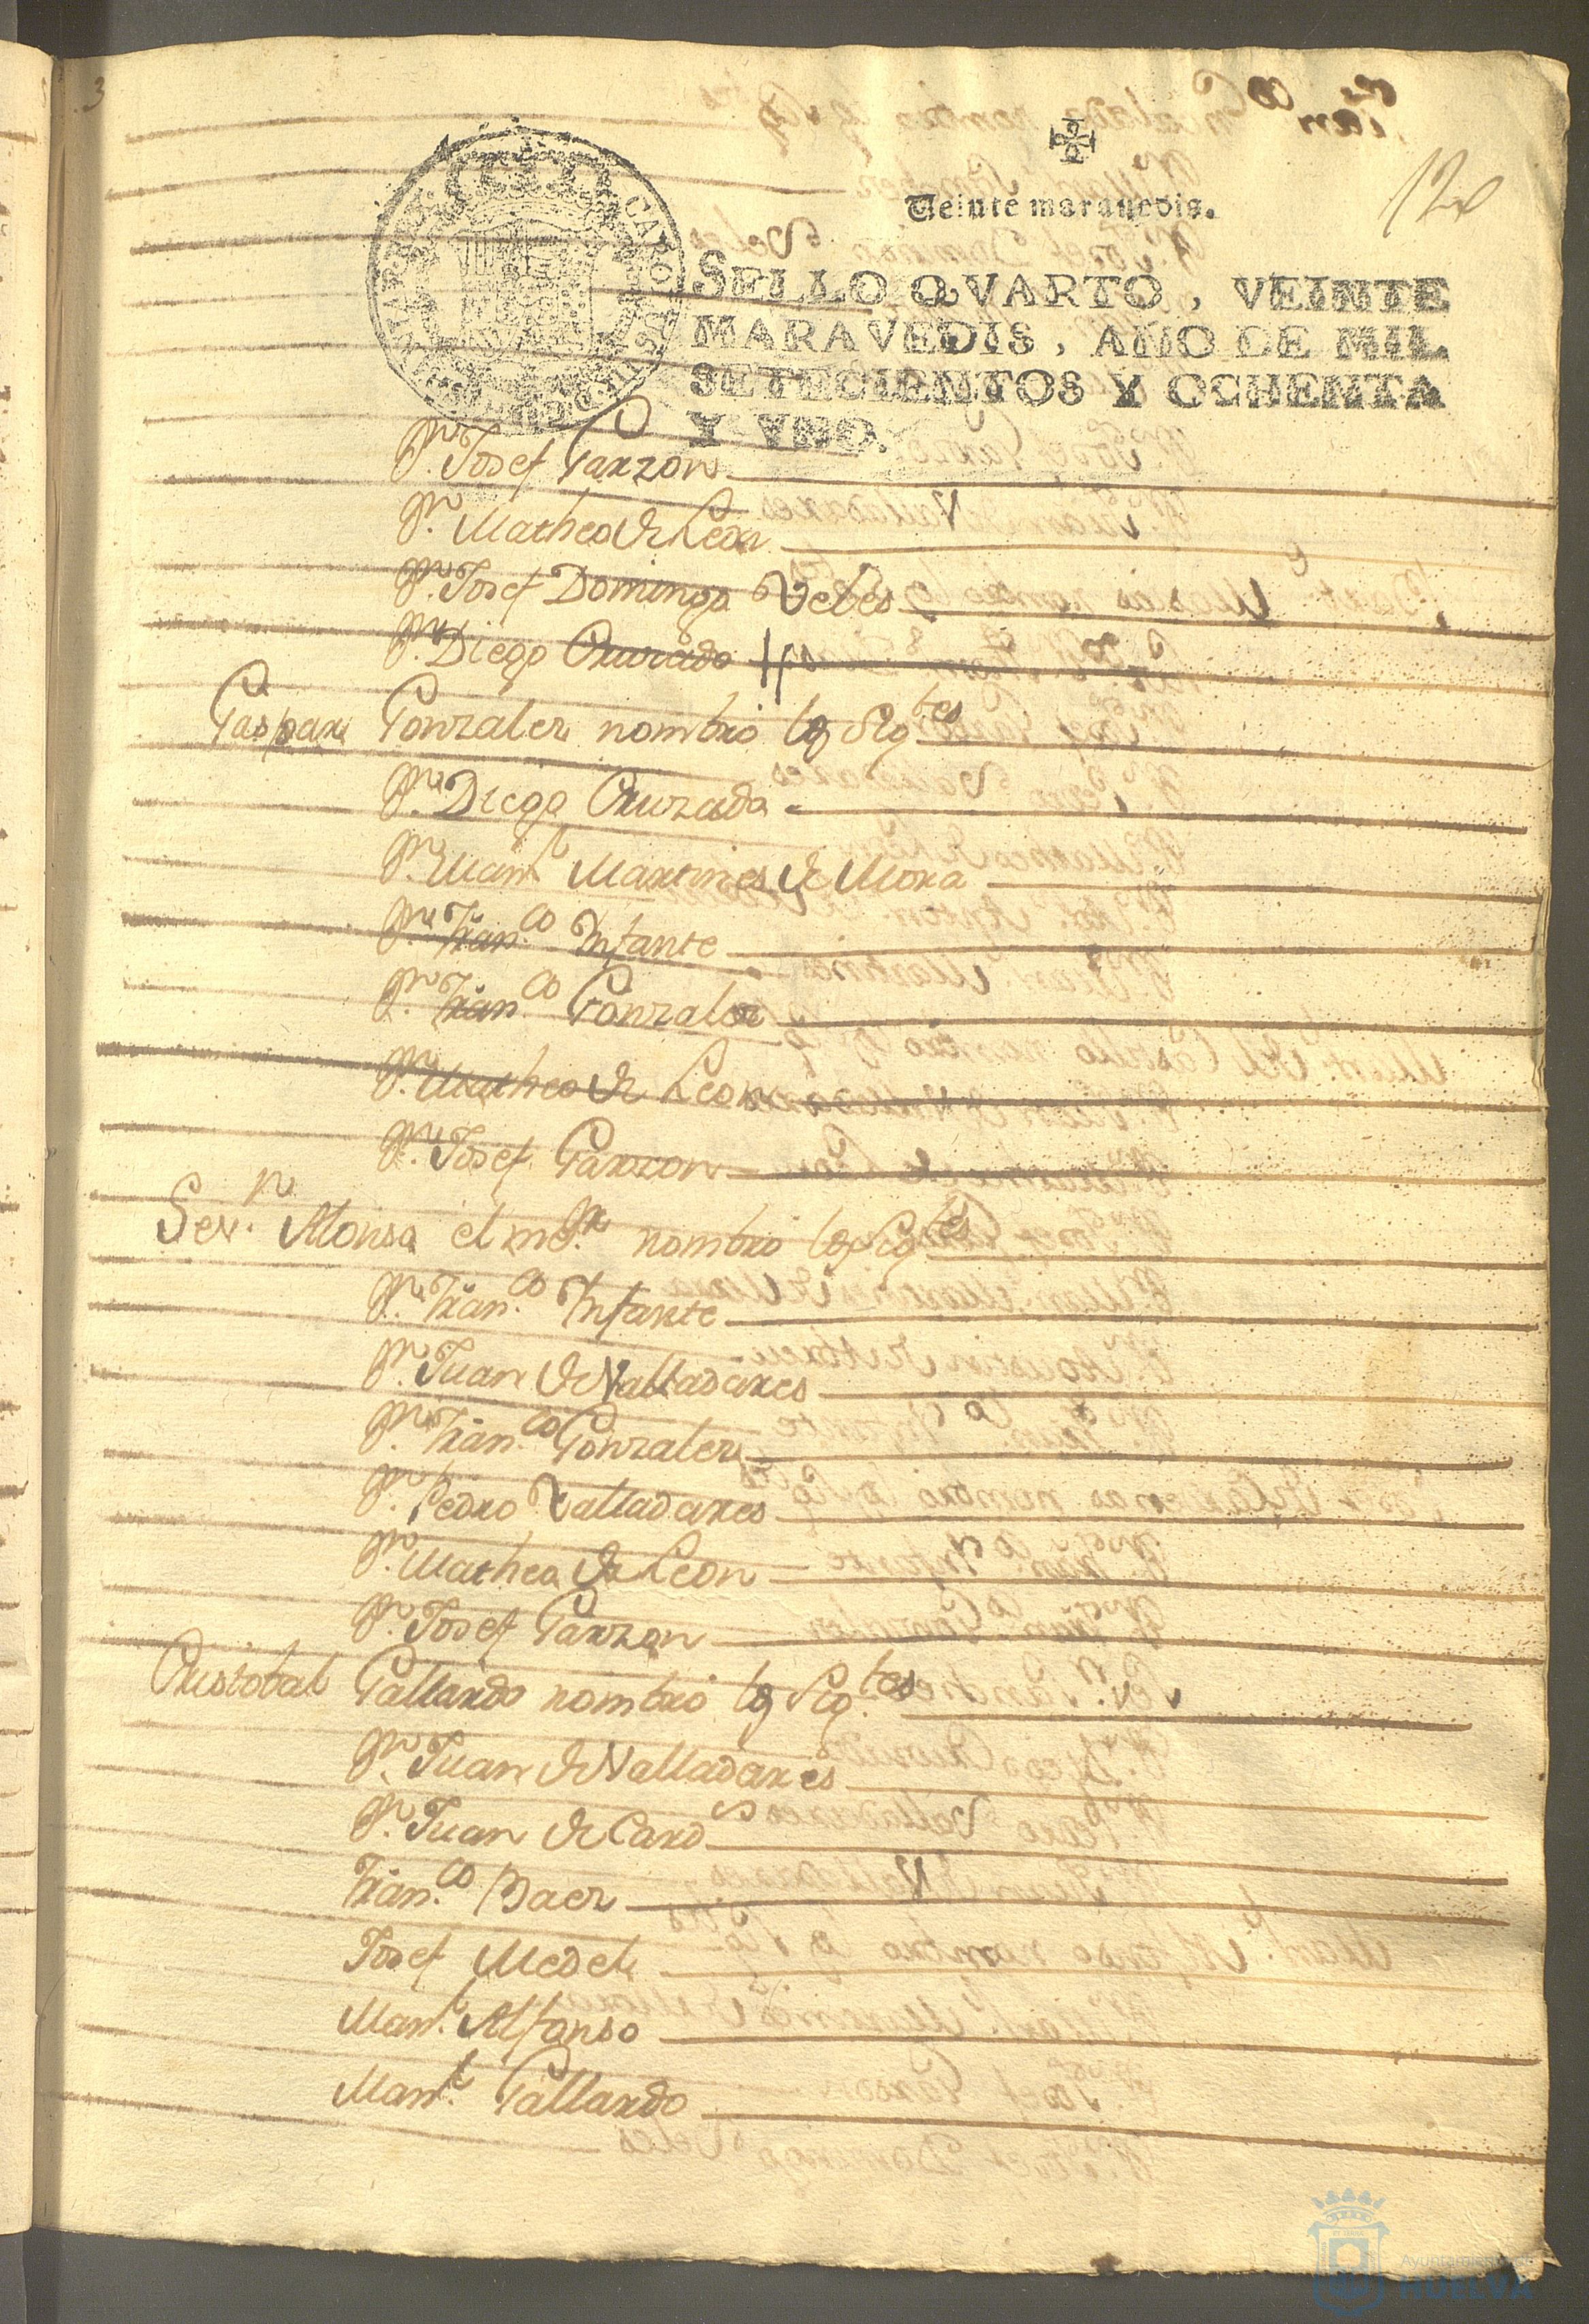 3
Veinte maravedis.
SELLO QVARTO, VEINTE
MARAVEDIS, AÑO DE MIL
SETECIENTOS Y OCHENTA
Y VNO.
Pr. Josef Garzon
Pr. Matheo de Leon
Pr. Josef Domingo Veles
Pr. Diego Cruzado
Gaspar Gonzalez nombró los Sigtes
Pr. Diego Cruzado
Pr. Manl. Martines de Mora
Pr. Fran.co Infante
Pr. Fran.co Gonzalez
Pr. Matheo de Leon
Pr. Josef Garzon
Sevn. Alonso el mor. nombró los Sigtes
Pr. Fran.co Infante
Pr. Juan de Valladares
Pr. Fran.co Gonzalez
Pr. Pedro Valladares
Pr. Matheo de Leon
Pr. Josef Garzon
Christobal Gallardo nombró los Sig.tes
Pr. Juan de Valladares
Pr. Juan de Cardos
Fran.co Baez
Josef Medel
Manl. Alfonso
Manl. Gallardo
Ayuntamiento de
HUELVA